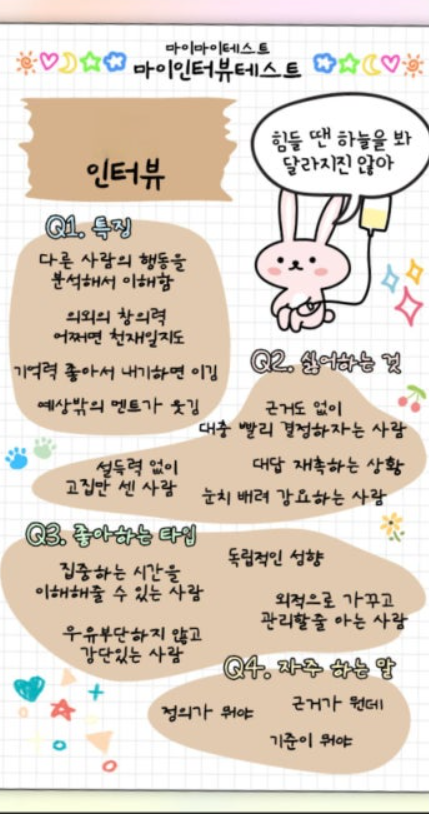 마이마이테스트
마이인터뷰테스트
힘들 땐 하늘을 봐
달라지진 않아
인터뷰
Q1. 특징
다른 사람의 행동을
분석해서 이해함
의외의 창의력
어쩌면 천재일지도
기억력 좋아서 내기하면 이김
예상밖의 멘트가 웃김
Q2. 싫어하는 것
근거도 없이
대충 빨리 결정하자는 사람
설득력 없이
고집만 센 사람
대답 재촉하는 상황
눈치 배려 강요하는 사람
Q3. 좋아하는 타입
집중하는 시간을
이해해줄 수 있는 사람
독립적인 성향
외적으로 가꾸고
관리할줄 아는 사람
우유부단하지 않고
강단있는 사람
Q4. 자주 하는 말
정의가 뭐야
근거가 뭔데
기준이 뭐야